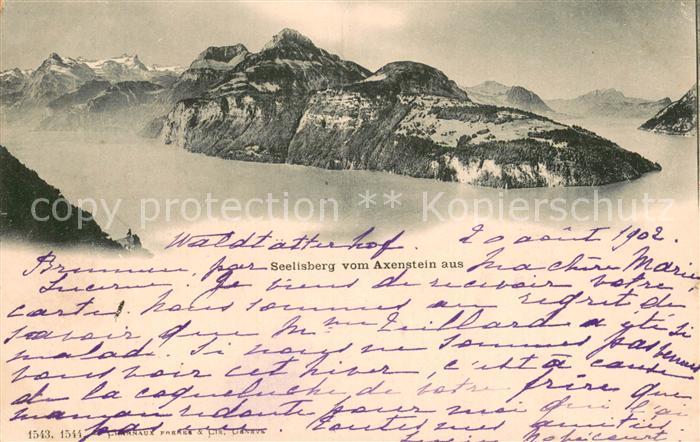 Waldtätterhof. 20 août 1902.
Seelisberg vom Axenstein aus
Brunnen, par Ma chère Marie
Lucerne. Je viens de recevoir votre
carte. Nous sommes au regret de
savoir que Mme Teillard a été si
malade. Si nous ne sommes pas venus
vous voir cet hiver, c'est à cause
de la coqueluche de votre frère que
maman redoute pour moi qui l'ai
pas eue. Toutes nos amitiés
1543. 1544 CHARNAUX FRÈRES & CIE, GENÈVE
** Copyright ** Kopierschutz